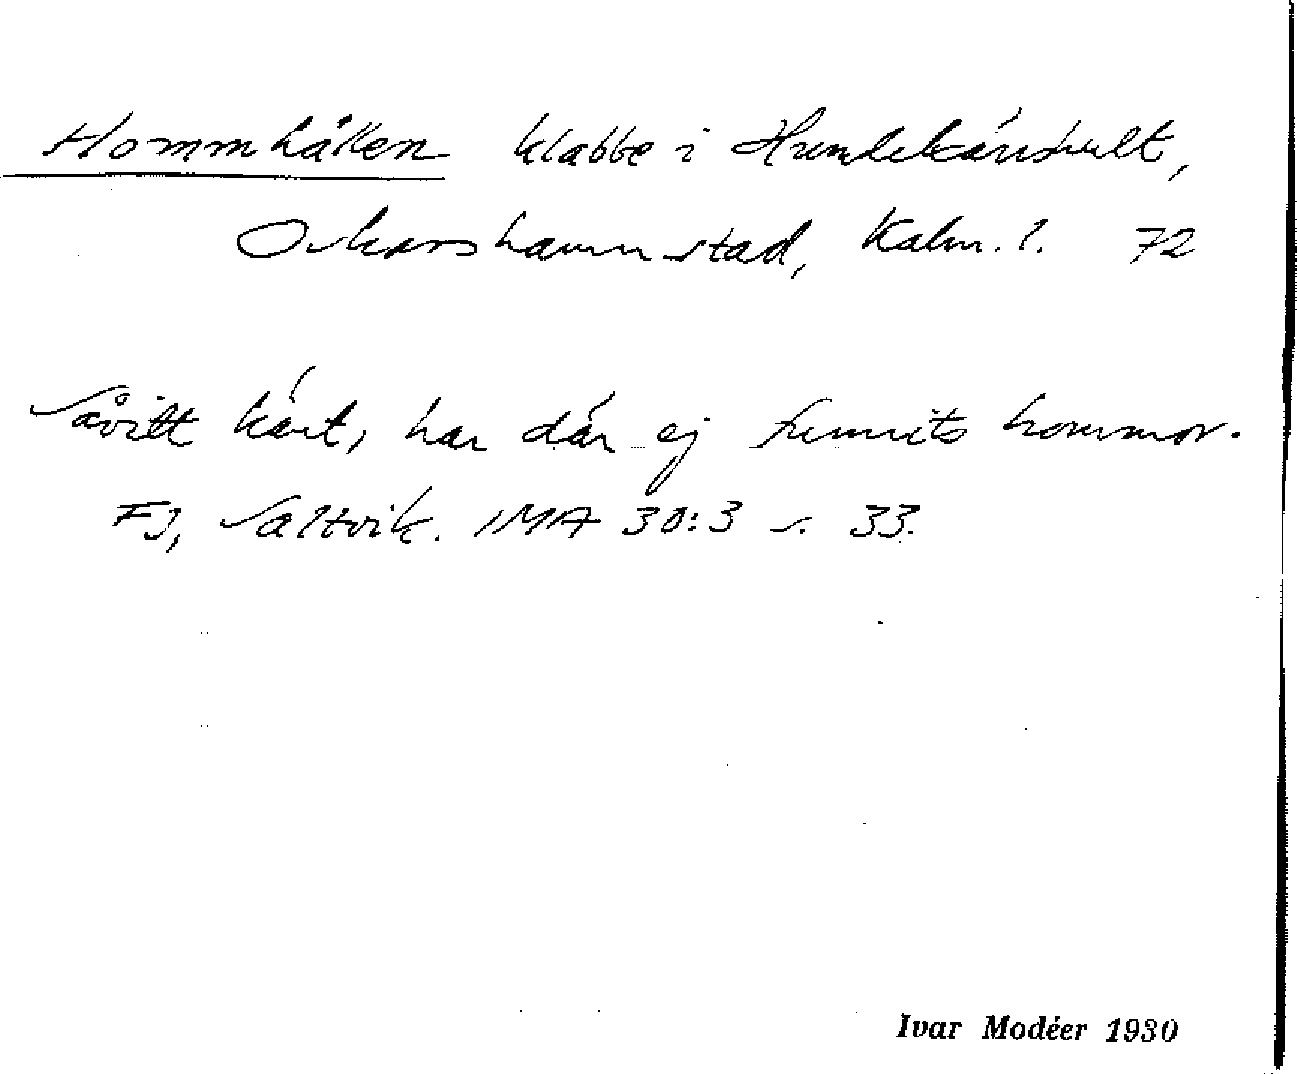 Hommhållen klabbe i Hundekärshult,
Oskarshamn stad, Kalm. l. 72
Såvitt känt, har där ej funnits hommor.
FJ, Saltvik. IMA 30:3 s. 33.
Ivar Modéer 1930